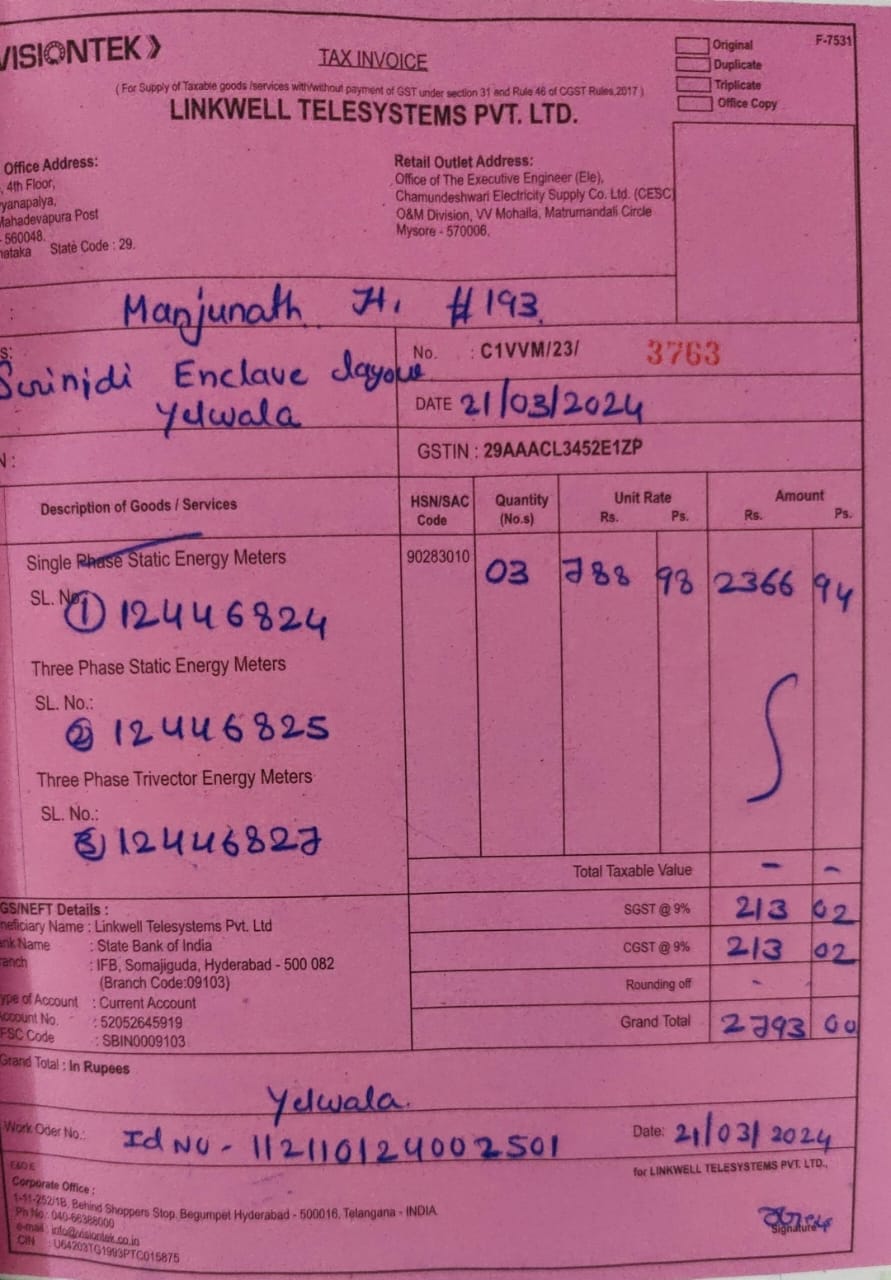 VISIONTEK
TAX INVOICE
Original
F-7531
Duplicate
Triplicate
Office Copy
( For Supply of Taxable goods /services with/without payment of GST under section 31 and Rule 46 of CGST Rules,2017 )
LINKWELL TELESYSTEMS PVT. LTD.
Office Address:
, 4th Floor,
yanapalya,
Mahadevapura Post
- 560048.
nataka State Code : 29.
Retail Outlet Address:
Office of The Executive Engineer (Ele),
Chamundeshwari Electricity Supply Co. Ltd. (CESC)
O&M Division, VV Mohalla, Matrumandali Circle
Mysore - 570006.
: Manjunath H. #193
s:
Enclave
Yelwala
No. : C1VVM/23/ 3763
DATE 21/03/2024
N :
GSTIN : 29AAACL3452E1ZP
Description of Goods / Services
HSN/SAC Code
Quantity (No.s)
Unit Rate Rs. Ps.
Amount Rs. Ps.
Single Phase Static Energy Meters 90283010 03 788 98 2366 94
SL. No.
① 12446824
Three Phase Static Energy Meters
SL. No.:
② 12446825
Three Phase Trivector Energy Meters
SL. No.:
③ 12446827
Total Taxable Value - -
SGST @ 9% 213 02
CGST @ 9% 213 02
Rounding off -
Grand Total 2793 00
GS/NEFT Details :
neficiary Name : Linkwell Telesystems Pvt. Ltd
nk Name : State Bank of India
ranch : IFB, Somajiguda, Hyderabad - 500 082
(Branch Code:09103)
ype of Account : Current Account
Account No. : 52052645919
FSC Code : SBIN0009103
Grand Total : In Rupees
Yelwala.
Work Oder No.: Id NO - 112110124002501
Date: 21/03/2024
E&O.E
for LINKWELL TELESYSTEMS PVT. LTD.,
Corporate Office :
1-11-252/1B, Behind Shoppers Stop, Begumpet Hyderabad - 500016, Telangana - INDIA.
Ph No.: 040-66388000
e-mail : info@visiontek.co.in
CIN : U64203TG1993PTC015875
Signature